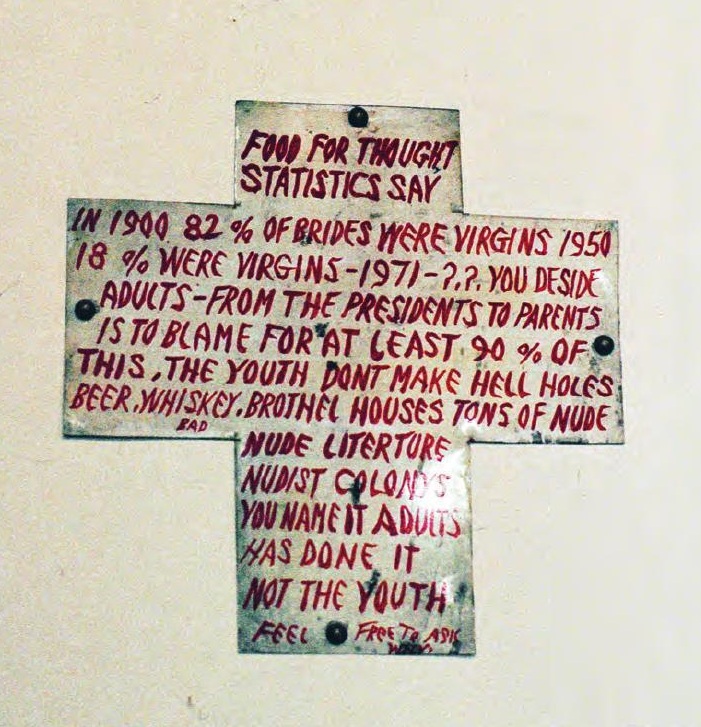 FOOD FOR THOUGHT
STATISTICS SAY
IN 1900 82 % OF BRIDES WERE VIRGINS 1950
18 % WERE VIRGINS-1971-?.?. YOU DESIDE
ADULTS-FROM THE PRESIDENTS TO PARENTS
IS TO BLAME FOR AT LEAST 90 % OF
THIS, THE YOUTH DONT MAKE HELL HOLES
BEER, WHISKEY, BROTHEL HOUSES TONS OF NUDE
BAD
NUDE LITERTURE
NUDIST COLONYS
YOU NAME IT ADULTS
HAS DONE IT
NOT THE YOUTH
FEEL FREE TO ASK